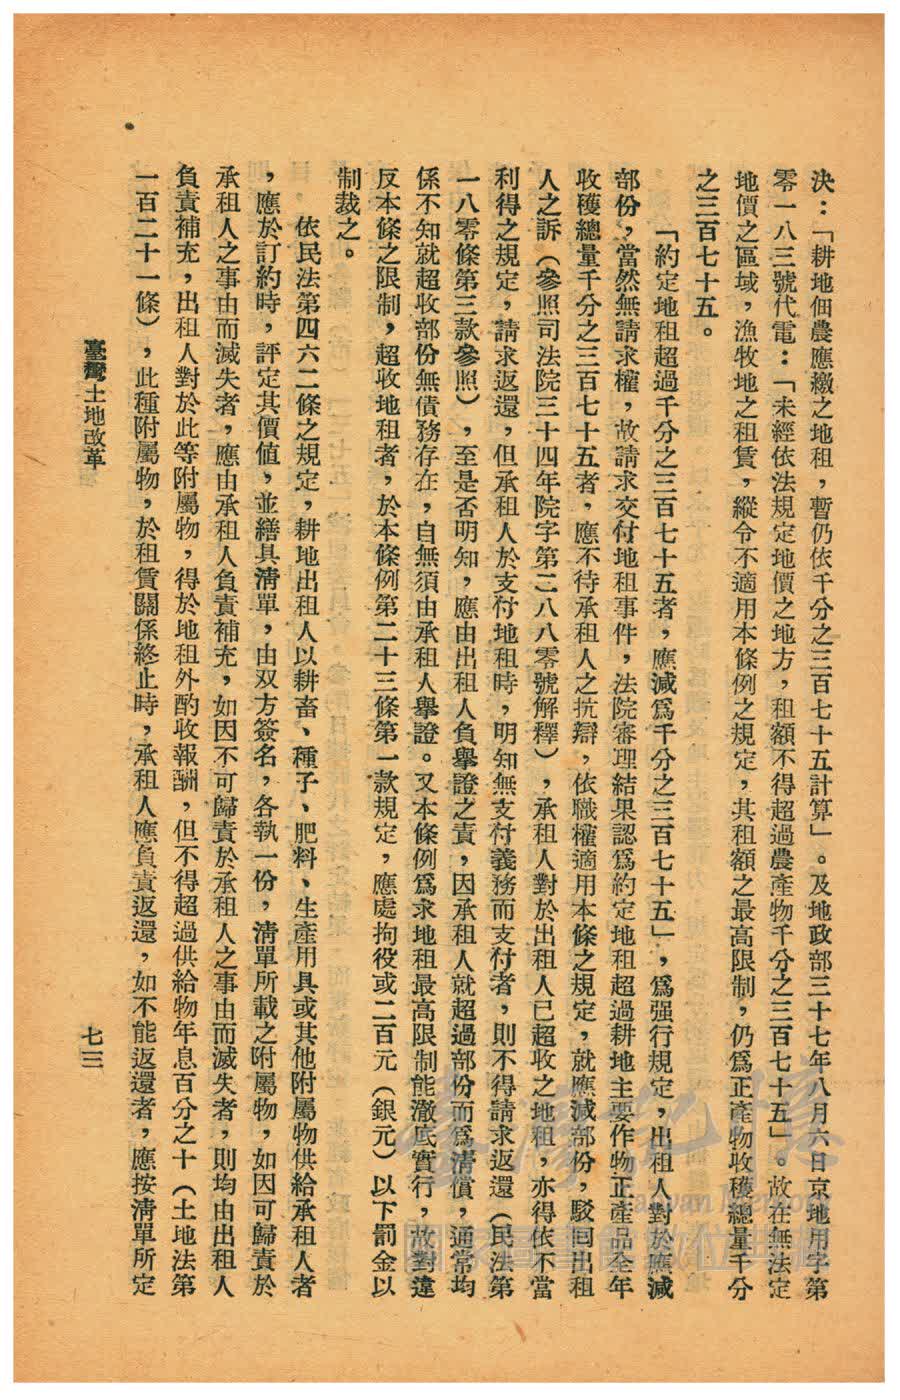 決：「耕地佃農應繳之地租，暫仍依千分之三百七十五計算」。及地政部三十七年八月六日京地用字第
零一八三號代電：「未經依法規定地價之地方，租額不得超過農產物千分之三百七十五」。故在無法定
地價之區域，漁牧地之租賃，縱令不適用本條例之規定，其租額之最高限制，仍爲正產物收穫總量千分
之三百七十五。
「約定地租超過千分之三百七十五者，應減爲千分之三百七十五」，爲强行規定，出租人對於應減
部份，當然無請求權，故請求交付地租事件，法院審理結果認爲約定地租超過耕地主要作物正產品全年
收穫總量千分之三百七十五者，應不待承租人之抗辯，依職權適用本條之規定，就應減部份，駁回出租
人之訴（參照司法院三十四年院字第二八八零號解釋），承租人對於出租人已超收之地租，亦得依不當
利得之規定，請求返還，但承租人於支付地租時，明知無支付義務而支付者，則不得請求返還（民法第
一八零條第三款參照），至是否明知，應由出租人負舉證之責，因承租人就超過部份而爲清償，通常均
係不知就超收部份無債務存在，自無須由承租人舉證。又本條例爲求地租最高限制能澈底實行，故對違
反本條之限制，超收地租者，於本條例第二十三條第一款規定，應處拘役或二百元（銀元）以下罰金以
制裁之。
依民法第四六二條之規定，耕地出租人以耕畜、種子、肥料、生產用具或其他附屬物供給承租人者
，應於訂約時，評定其價値，並繕具清單，由双方簽名，各執一份，清單所載之附屬物，如因可歸責於
承租人之事由而滅失者，應由承租人負責補充，如因不可歸責於承租人之事由而滅失者，則均由出租人
負責補充，出租人對於此等附屬物，得於地租外酌收報酬，但不得超過供給物年息百分之十（土地法第
一百二十一條），此種附屬物，於租賃關係終止時，承租人應負責返還，如不能返還者，應按清單所定
臺灣土地改革
七三
臺灣記憶
Taiwan Memory
國家圖書館數位典藏